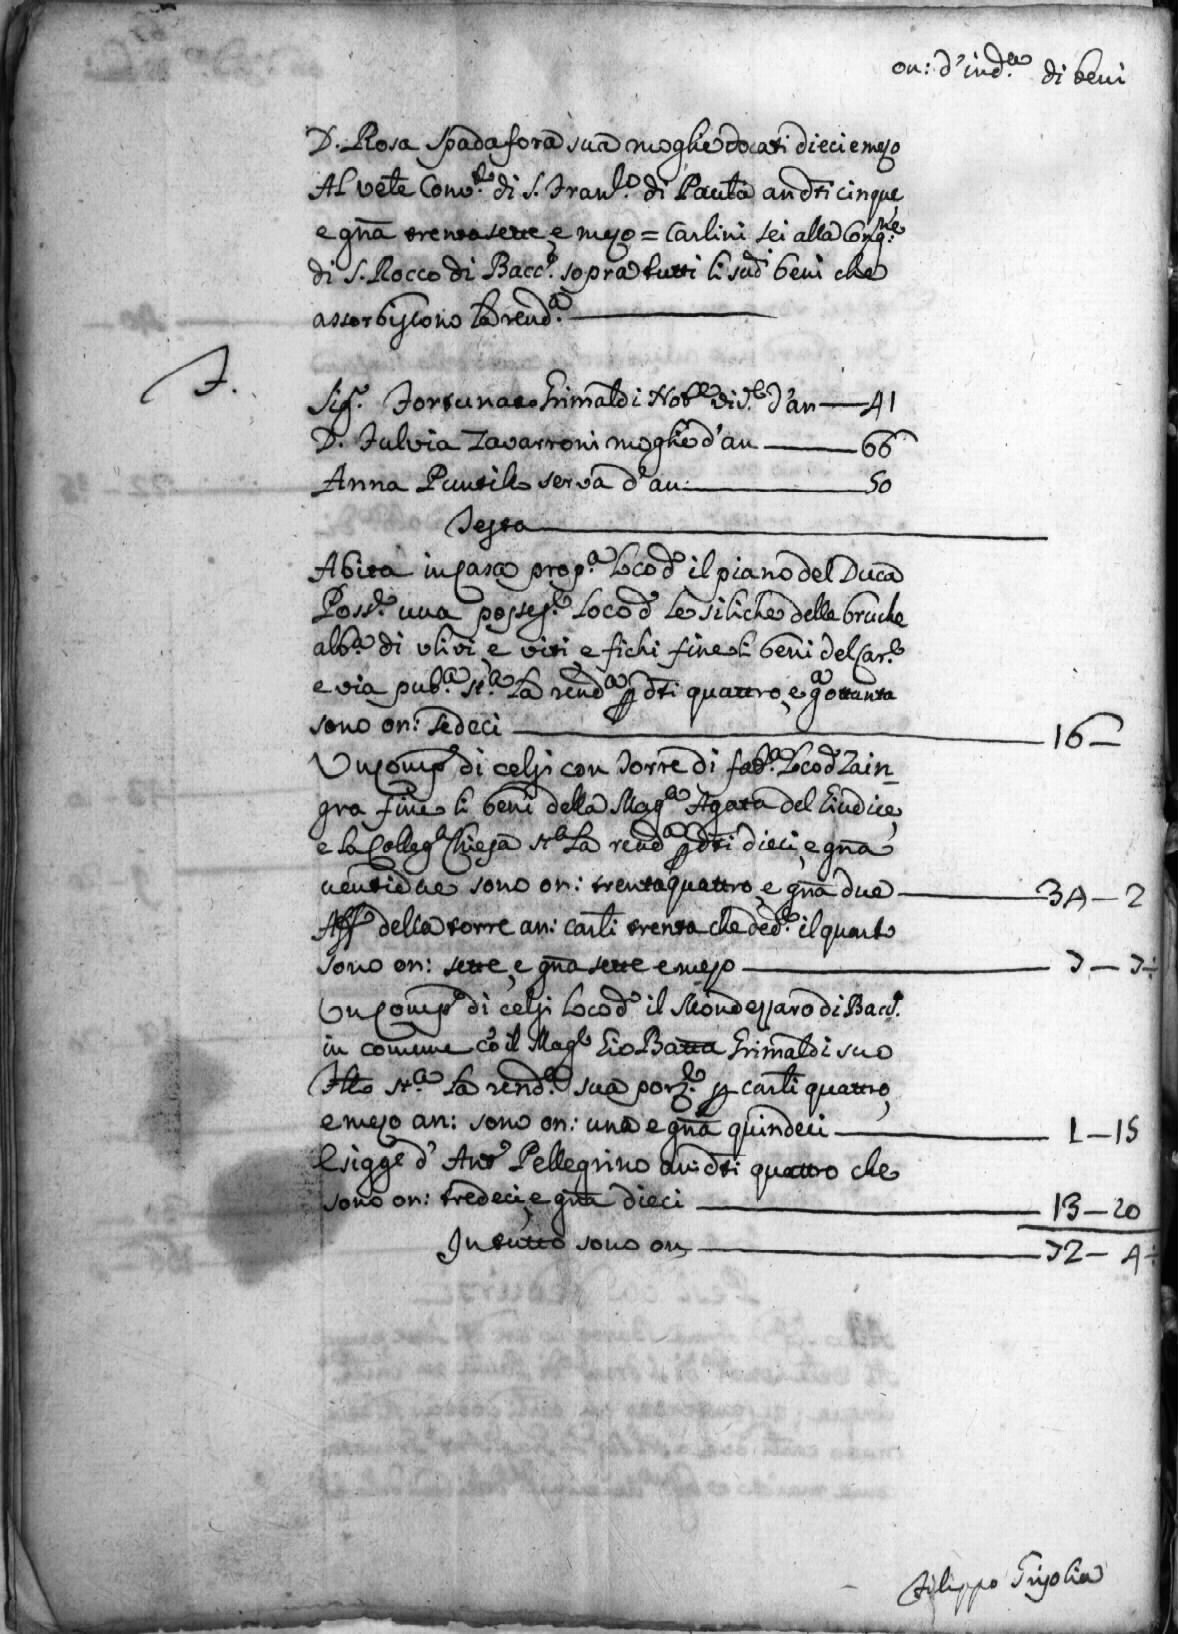 on: d'ind.a di beni
D. Rosa Spadafora sua moglie docati dieci e mezo
Al vēle Conv.to di S. Fran.co di Paula an dti cinque,
e gna trenta sette, e mezo = Carlini sei alla Cong.ne
di S. Rocco di Bacc.o sopra tutti li sud.i beni che
assorbiscono la rend.a
F.
Sig.r Fortunato Grimaldi Nob.e d'an 41
D. Fulvia Zavarroni moglie d'an 66
Anna Puntillo serva d'an: 50
Testa
Abita in casa prop.a loco d.o il piano del Duca
Poss.e una possess.e loco d.o le siliche delle bruche
alb.a di ulivi, e viti, e fichi fine li beni del Car.e
e via pub.a st.a la rend.a p dti quattro, e g.a ottanta
sono on: sedeci 16 —
Un comp.o di celsi con Torre di fab.a loco d.o Zain
gra fine li beni della Mag.ca Agata del Giudice,
e la Colleg.a Chiesa st.a la rend.a p dti dieci, e gna
ventidue sono on: trentaquattro, e gna due 34 — 2
Aff.o della torre an: carli trenta che ded.o il quarto
sono on: sette, e gna sette e mezo 7 — 7:
Un comp.o di celsi loco d.o il Mondezzaro di Bacc.o
in comune co il Mag.o Gio Batta Grimaldi suo
Fllo st.a la rend.a sua porz.e p carli quattro,
e mezo an: sono on: una e gna quindeci 1 — 15
Esigge d' Ant.o Pellegrino an: dti quattro che
sono on: tredeci, e gna dieci 13 — 20
In tutto sono on 72 — 4:
Filippo Grisolia